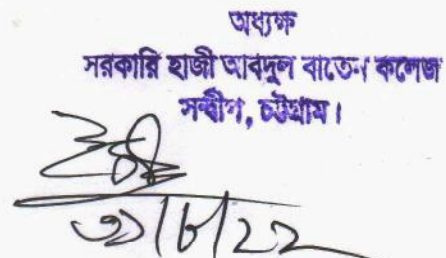 অধ্যক্ষ
সরকারি হাজী আবদুল বাতেন কলেজ
সন্দ্বীপ, চট্টগ্রাম।
৩১/৮/২২